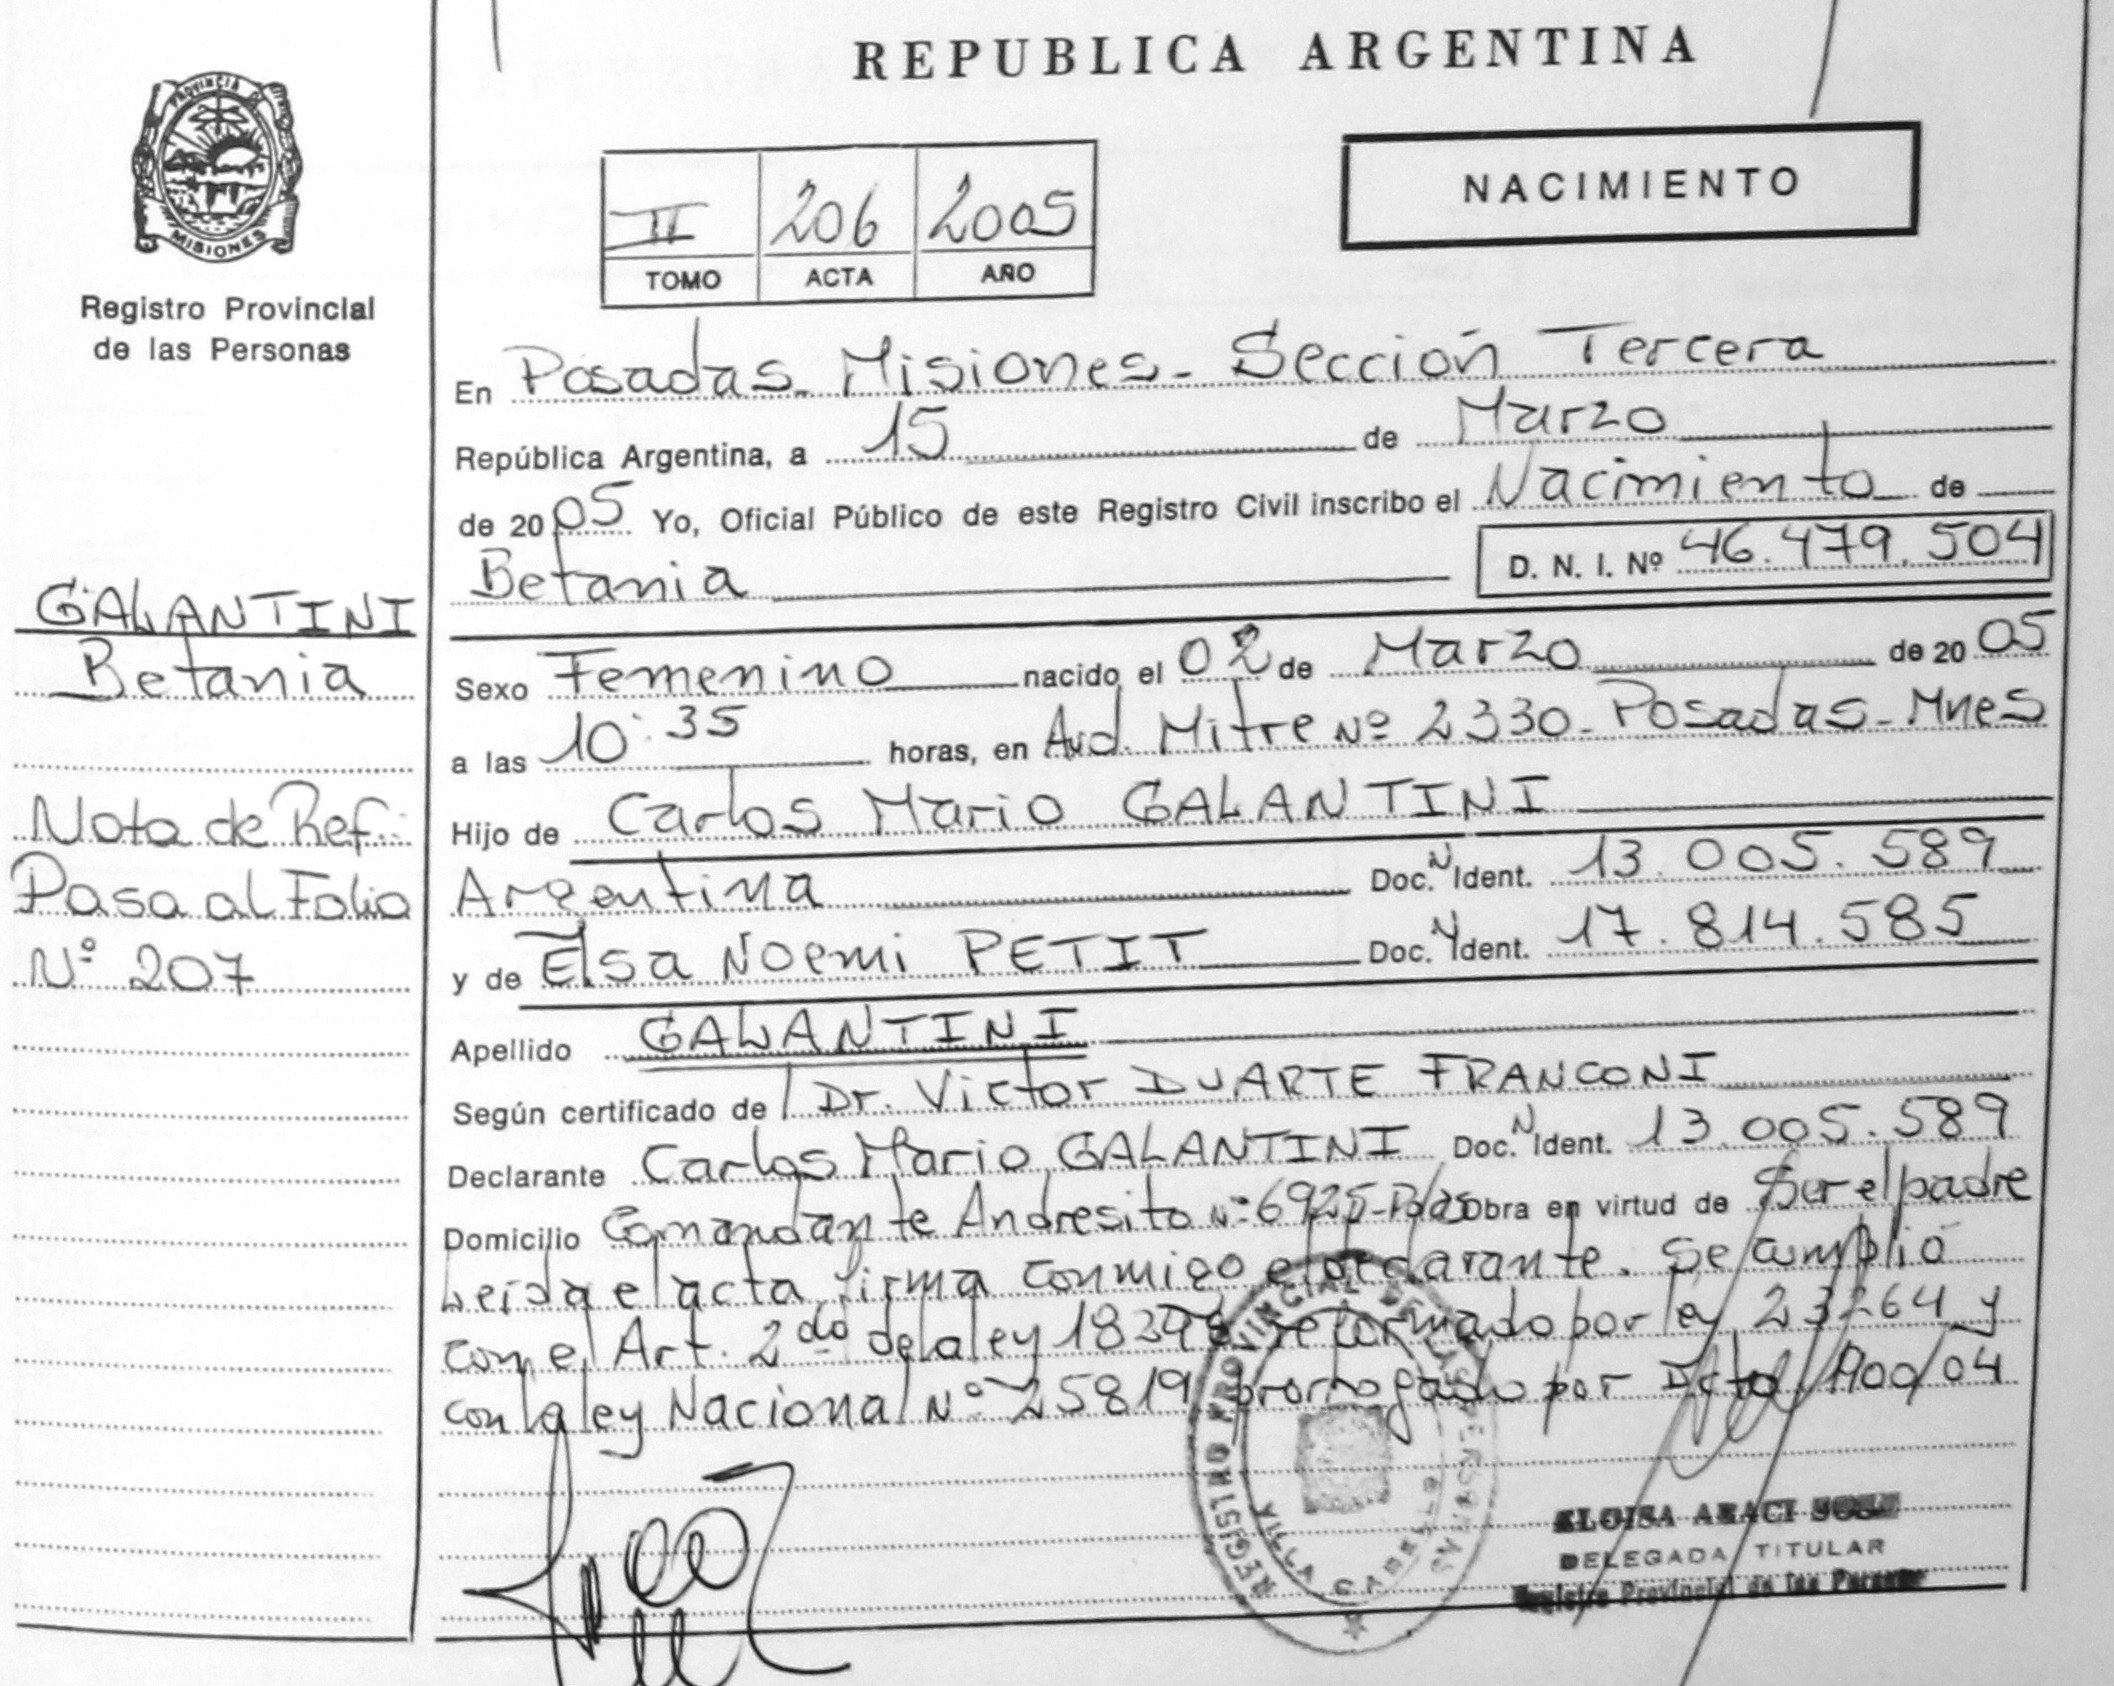 REPUBLICA ARGENTINA
PROVINCIA DE
MISIONES
Registro Provincial
de las Personas
II 206 2005
TOMO ACTA AÑO
NACIMIENTO
En Posadas - Misiones - Sección Tercera
República Argentina, a 15 de Marzo
de 2005 Yo, Oficial Público de este Registro Civil inscribo el Nacimiento de
Betania D. N. I. Nº 46.479.504
GALANTINI
Betania
Sexo Femenino nacido el 02 de Marzo de 2005
a las 10:35 horas, en Avd. Mitre Nº 2330 - Posadas - Mnes
Hijo de Carlos Mario GALANTINI
Argentina Doc. N Ident. 13.005.589
y de Elsa Noemi PETIT Doc. N Ident. 17.814.585
Nota de Ref:
Pasa al Folio
Nº 207
Apellido GALANTINI
Según certificado de Dr. Victor DUARTE FRANCONI
Declarante Carlos Mario GALANTINI Doc. N Ident. 13.005.589
Domicilio Comandante Andresito Nº 6925 - Pdas Obra en virtud de Ser el padre
Leida el acta firma conmigo el declarante. Se cumplió
con el Art. 2do de la ley reformado por ley 23264 y
con la ley Nacional Nº 25819 prorrogado por Dcto.
REGISTRO PROVINCIAL DE LAS PERSONAS
VILLA CABELLO
ELOISA ARACI
DELEGADA TITULAR
Registro Provincial de las Personas